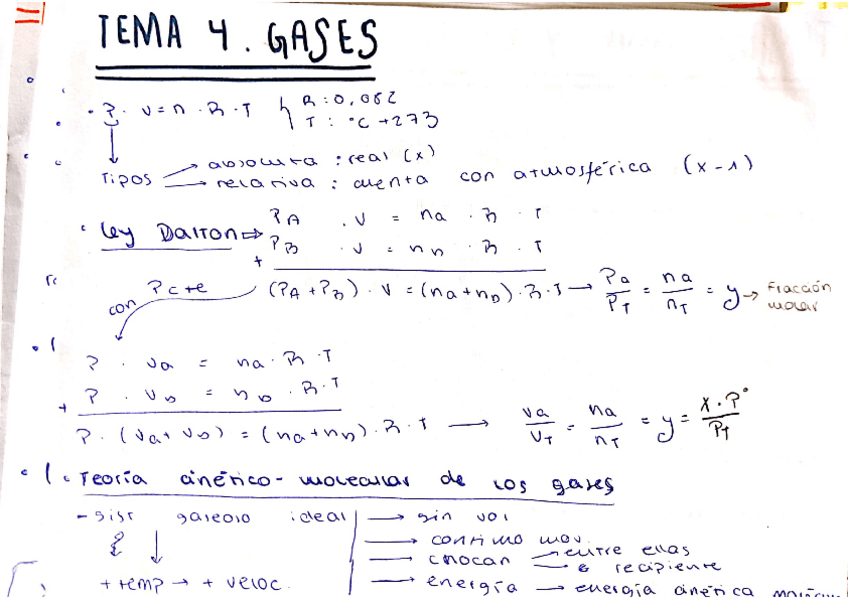 TEMA 4. GASES
· P · V = n · R · T { R : 0,082
T : °C + 273
Tipos → absoluta : real (x)
→ relativa : cuenta con atmosférica (x - 1)
Ley Dalton ⇒ PA · V = na · R · T
PB · V = nb · R · T
+
con Pcte (PA + PB) · V = (na + nb) · R · T → Pa/PT = na/nT = y → Fracción molar
P · Va = na · R · T
P · Vb = nb · R · T
+
P · (Va + Vb) = (na + nb) · R · T → Va/VT = na/nT = y = x · P°/PT
Teoría cinético-molecular de los gases
- sist gaseoso ideal → sin vol
→ continuo mov.
→ chocan → entre ellas
→ recipiente
+ temp → + veloc. → energía → energía cinética